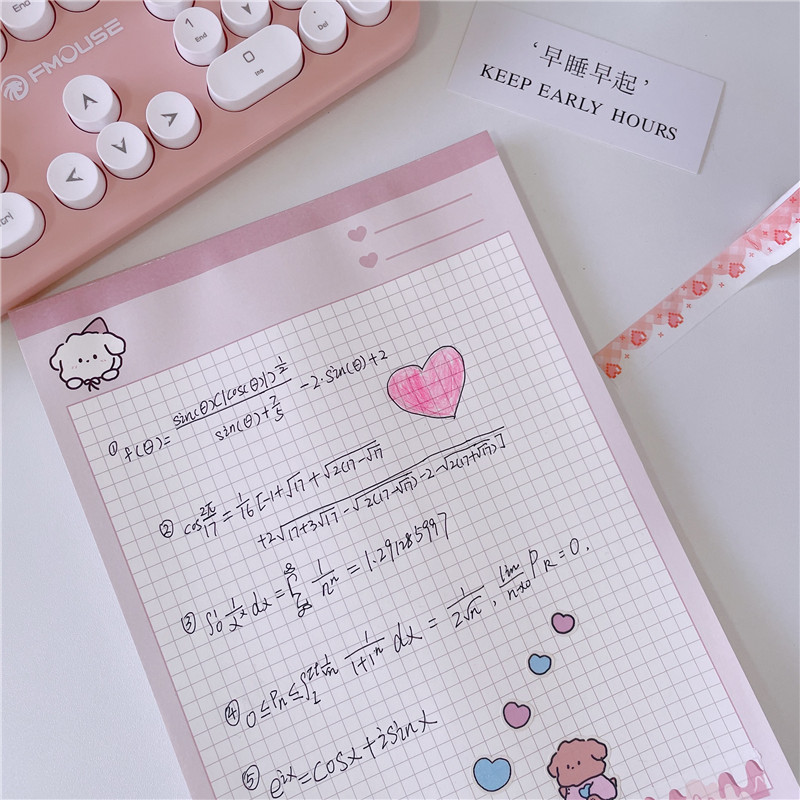 End
1
End
.
Del
0
Ins
FMOUSE
Ctrl
'早睡早起'
KEEP EARLY HOURS
① f(θ)= sin(θ)(|cos(θ)|)^(1/2) / (sin(θ)+7/5) -2·sin(θ)+2
② cos 2π/17 = 1/16 [-1+√17+√2(17-√17
+2√17+3√17-√2(17-√17)-2-√2(17+√17)]
③ ∫₀¹ 1/xˣ dx = 1/nⁿ = 1.291285997
④ 0≤Pn≤∫ 1/(1+1ⁿ) dx = 1/(2√n), lim n→∞ Pn=0.
⑤ e^(ix)=cosx+isinx